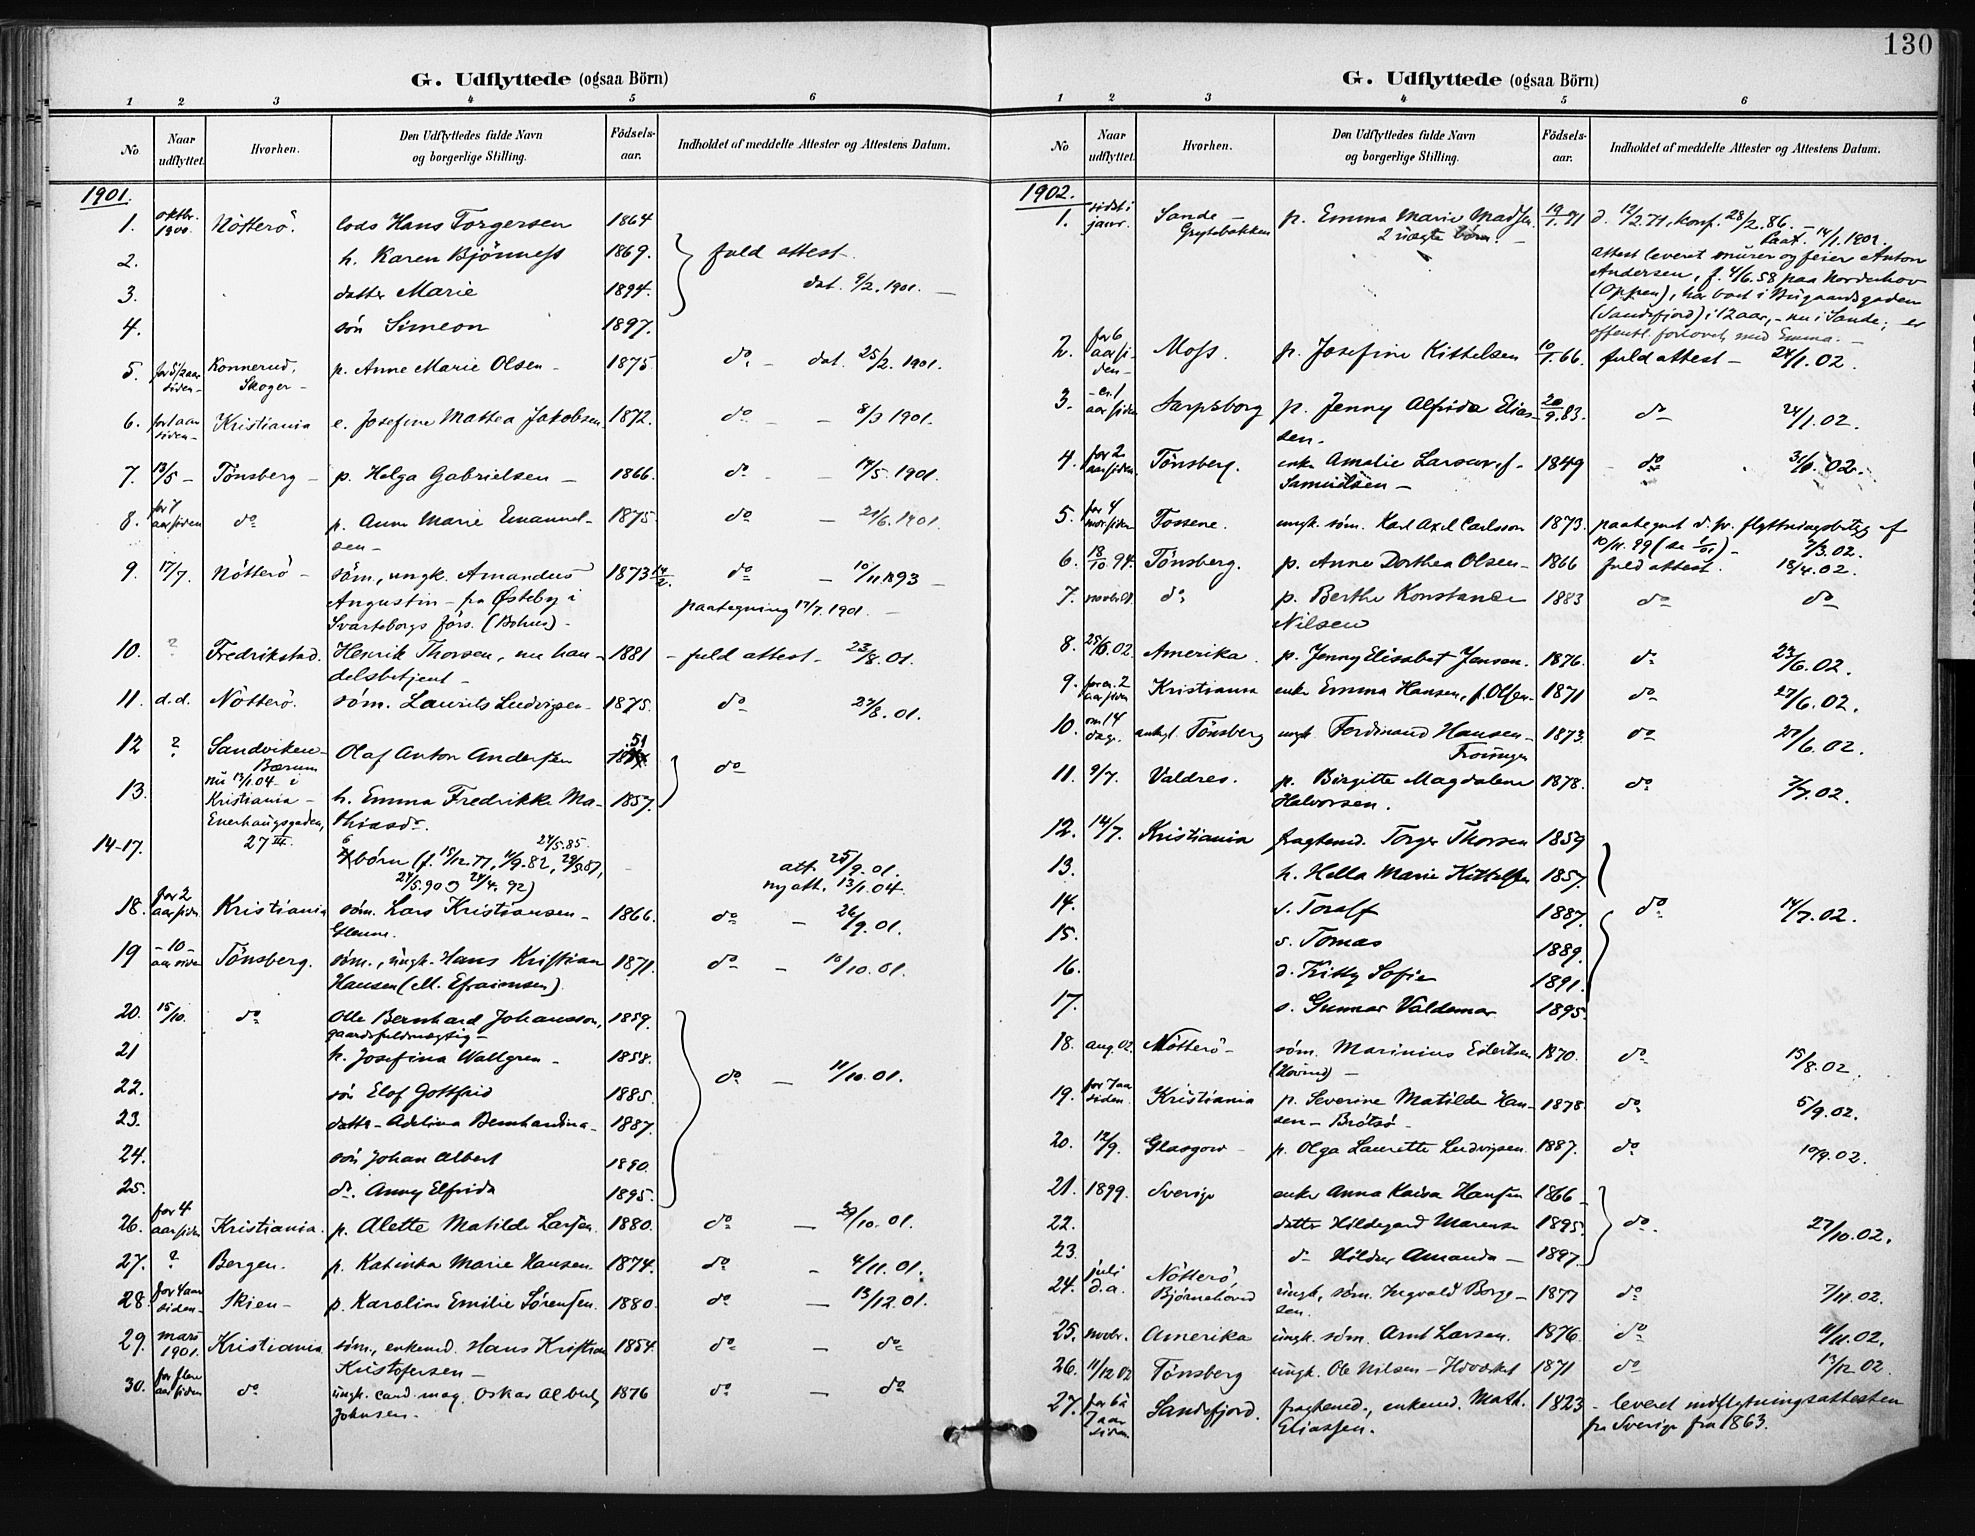 130
G. Udflyttede (ogsaa Börn)
1 2 3 4 5 6
No. Naar udflyttet. Hvorhen. Den Udflyttedes fulde Navn og borgerlige Stilling. Födsels-aar. Indholdet af meddelte Attester og Attestens Datum.
1901.
1. oktbr. 1900. Nötterö. lods Hans Torgersen 1864
2. h. Karen Bjönness 1869. fuld attest
3. datter Marie 1894. dat. 9/2. 1901. —
4. sön Simeon 1897.
5. for 5 1/2 aar siden - Konnerud, Skoger - p. Anne Marie Olsen - 1875. do - dat. 25/2. 1901.
6. for 1 aar siden - Kristiania e. Josefine Mathea Jakobsen 1872. do - 8/3 1901.
7. 13/5 - Tönsberg - p. Helga Gabrielsen - 1866. do - 14/5. 1901.
8. for 7 aar siden do p. Anna Marie Emanuel- 1875. do - 21/6. 1901.
sen -
9. 17/7. Nötterö - söm., ungk. Amandus 1873 14/2. do - 10/11 1893 -
Augustin - fra Østeby i paategning 17/7. 1901. -
Svarteborgs förs. (Bohus) -
10. ? Fredrikstad. Henrik Thorsen, nu han- 1881 - fuld attest - 23/8. 01.
delsbetjent -
11. d.d. Nötterö. söm. Laurits Ludvigsen - 1875. do 27/8. 01.
12 ? Sandviken - Olaf Anton Andersen 51 do
Bærum
nu 13/1 04. i
13. Kristiania - h. Emma Fredrikke Ma- 1857.
Enerhaugsgaden, thiasdr.
27 III.
14-17. 6 börn (f. 15/12. 77, 11/9. 82, 24/5. 85. 29/3. 87, att. 25/9. 01.
24/5. 90 & 24/4. 92) ny att. 13/1. 04.
18. for 2 aar siden Kristiania söm. Lars Kristiansen - 1866. do - 26/9. 01.
19 - 10 - aar siden Tönsberg. söm., ungk. Hans Kristian 1871. do - 10/10. 01.
Hansen (M. Efraimsen)
20. 15/10. do Olle Bernhard Johansson, 1859.
gaardsfuldmægtig -
21 h. Josefina Wallgren - 1858. do - 11/10. 01.
22. sön Elof Gottfrid 1885.
23. datter - Adelina Bernhardina - 1887.
24. sön Johan Albert 1890.
25. d. Anny Elfrida 1895.
26. for 4 aar siden Kristiania. p. Alette Matilde Larsen 1880. do - 29/10. 01.
27. ? Bergen. p. Kativka Marie Hansen 1874. do - 4/11. 01.
28. for 4 aar siden - Skien - p. Karoline Emilie Sörensen. 1880. do - 13/12. 01.
29. mars 1901. Kristiania söm., enkemd. Hans Kristian 1854. do - do
Kristofersen -
30. for flere aar siden do ungk. cand. mag. Oskar Albert 1876 do - do
Johnsen.
G. Udflyttede (ogsaa Börn)
1 2 3 4 5 6
No Naar udflyttet. Hvorhen. Den Udflyttedes fulde Navn og borgerlige Stilling. Födsels-aar. Indholdet af meddelte Attester og Attestens Datum.
1902.
1. sidst i janr. Sande - p. Emma Marie Madsen 19/1. 71 d. 12/2. 71, konf. 28/2. 86. -
Grytebakken 2 uægte börn. - 14/1. 1902.
attest leveret murer og feier Anton
Andersen, f. 4/6. 58 paa Norderhov
(Oppen), har boet i Bugaardsgaden
(Sandefjord) i 12 aar, - nu i Sande; er
offentl. forlovet med Emma. -
2. for 6 aar siden - Moss. p. Josefine Kittelsen 10/1. 66. fuld attest - 24/1. 02.
3. - ca. 1 aar siden Sarpsborg p. Jenny Alfrida Elias- 20/9. 83. do 24/1. 02.
sen.
4. for 2 aar siden. Tönsberg. enke Amalie Larsen, f. 1849 do 31/1. 02.
Samuelsen -
5. for 4 mdr. siden Tossene. ungk. söm. Karl Axel Carlsson 1873. paategnet d. sv. flytningsbetyg af
10/11. 99 (se 1/01) - 7/3. 02.
6. 18/10 94. Tönsberg. p. Anne Dorthea Olsen - 1866 fuld attest. 18/4. 02.
7. do p. Berthe Konstance 1883 do do
Nilsen
8. 25/6. 02. Amerika. p. Jenny Elisabet Jensen. 1876. do 23/6. 02.
9. for ca. 2 aar siden Kristiania enke Emma Hansen, f. Olsen - 1871 do 27/6. 02.
10. om 14 dage. Tönsberg ungk. Ferdinand Hansen - 1873. do 27/6. 02.
11. 9/7. Valdres. p. Birgitte Magdalene 1878. do 7/7. 02.
Halvorsen.
12. 14/7. Kristiania fragtemd. Torger Thorsen 1859
13. h. Hella Marie Kittelsen 1857.
14. s. Toralf 1887. do 14/7. 02.
15. s. Tomas 1889.
16. d. Kitty Sofie 1891.
17. s. Gunnar Valdemar 1895.
18. aug. 02. Nötterö - söm. Marinius Eilertsen 1870. do 15/8. 02.
(Hovind) -
19. for 7 aar siden. Kristiania p. Severine Matilde Han- 1878. do 5/9. 02.
sen - Brötsö -
20. 12/9. Glasgow - p. Olga Laurette Ludvigsen 1887. do 10/9. 02.
21. 1899. Sverige enke Anna Kaisa Hansen 1866 -
22. datter Hildegard Marense 1895. do. 27/10. 02.
23. d- Hildur Amanda - 1897.
24. juli d.a. Nötterö, Björnehoved ungk. söm. Ingvald Borge- 1877 do 7/11. 02.
sen.
25. novbr. Amerika ungk. söm. Arnt Larsen. 1876. do 11/11. 02.
26. 11/12 02 Tönsberg ungk. Ole Nilsen - Hovæket 1871 do 13/12 02
27. for 6 à 7 aar siden. Sandefjord. fragtemd., enkemd. Math. 1823 - leveret indflytningsattesten
Eliassen. fra Sverige fra 1863.